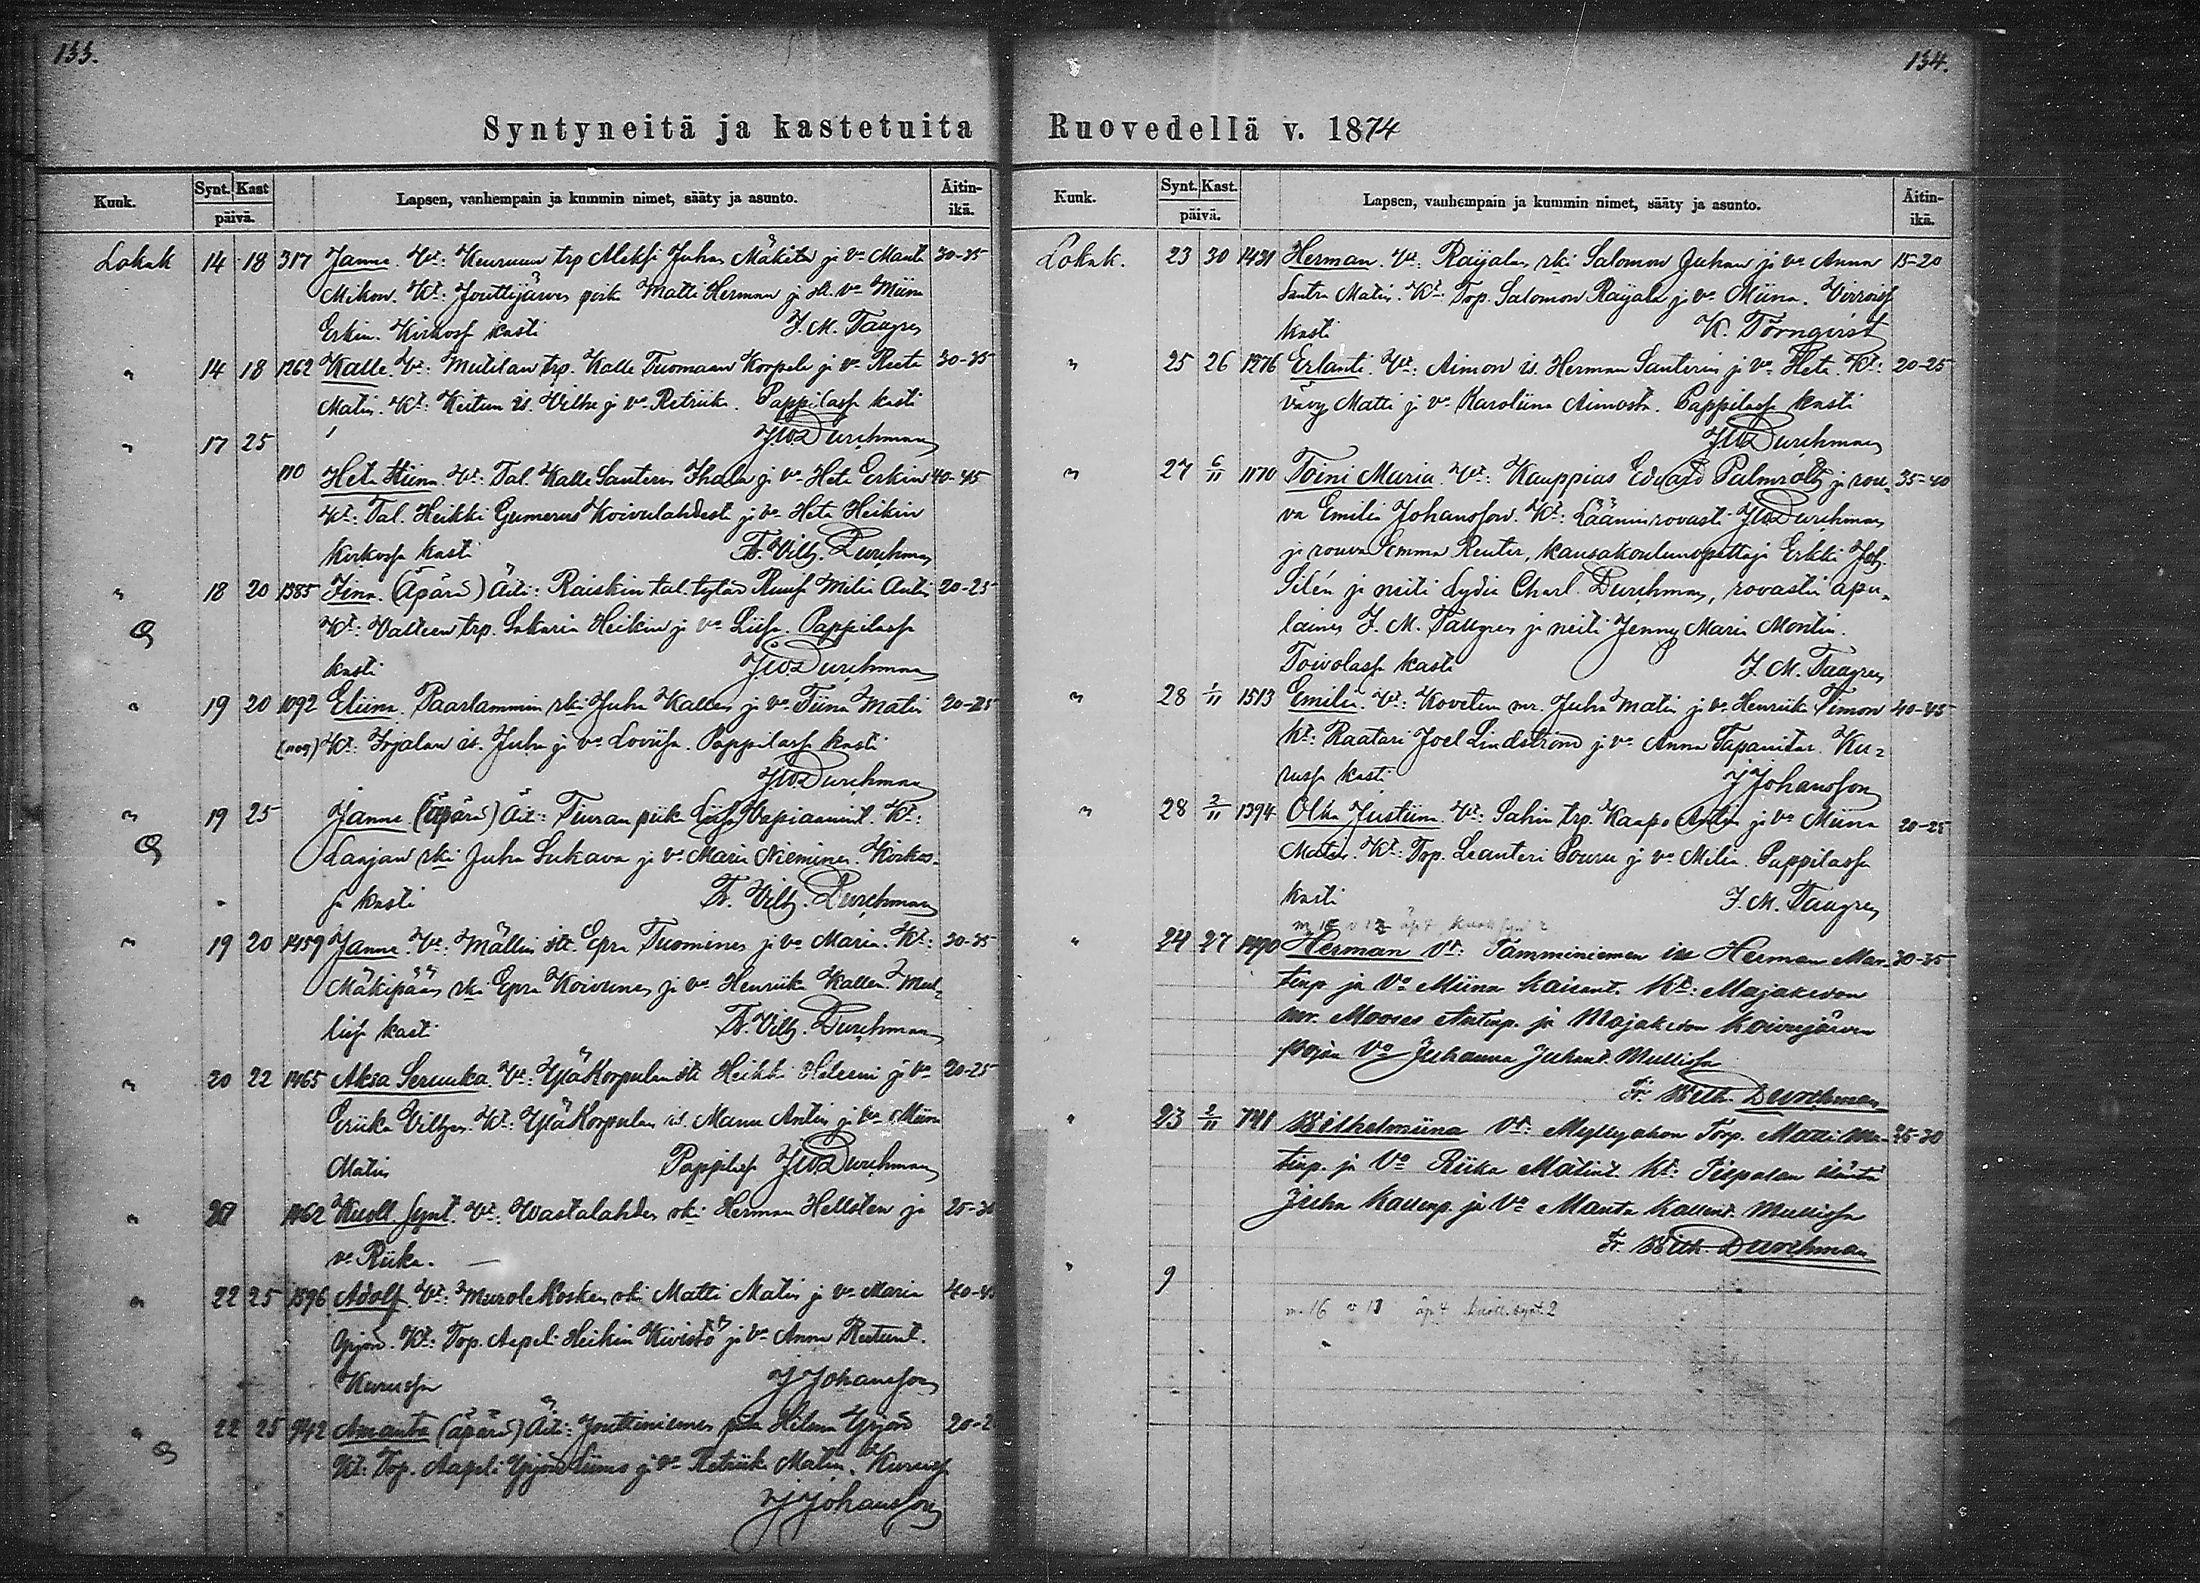 133.
Syntyneitä ja kastetuita
Kuuk.
Synt. Kast
päivä.
Lapsen, vanhempain ja kummin nimet, sääty ja asunto.
Äitin-
ikä.
Lokak 14 18 317 Janne. Vt: Keuruun trp Aleksi Juhan Mäkelä ja vo Manta 30-35
Mikon. Kt: Jouttijärven poika Matti Herman ja vo Miina
Erkin. Kirkossa kasti J. M. Taugren
" 14 18 1262 Kalle. Vt: Mutilan trp. Kalle Tuomaan Korpela ja vo Reeta 30-35
Matin. Kt: Keitun is. Vilhe ja vo Retriika. Pappilassa kasti
" 17 25 JWDurchman
110 Heta Stiina. Vt: Tal. Kalle Santerin Ihala ja vo Heta Erkin 40-45
Kt: Tal. Heikki Gumerus Koivulahdesta ja vo Heta Heikin
kirkossa kasti Fr. Vilh. Durchman
" 18 20 1385 Fina. (Äpärä) Äiti: Raiskin tal. tytär Ruusa Milia Antin 20-25
Kt: Valteen trp. Sakaria Heikin ja vo Liisa. Pappilassa
kasti JWDurchman
" 19 20 1092 Eliina. Paarlammin rki Juha Kallen ja vo Tiina Matin 20-25
Kt: Irjalan is. Juha ja vo Loviisa. Pappilassa kasti
JWDurchman
" 19 25 Janne (äpärä) Äit: Tiuran piika Liisa Wapiaanint. Kt:
Laajan rki Juha Sukava ja vo Maria Nieminen. Kirkos-
sa kasti Fr. Vilh. Durchman
" 19 20 1459 Janne. Vt: Mällin itt. Epra Tuominen ja vo Maria. Kt: 30-35
Mäkipään rki Epra Koivunen ja vo Henriika Kallen. Mul-
liss kasti Fr. Vilh. Durchman
" 20 22 1465 Aksa Serenka. Vt: YläKorpulan itt Heikki Heleeni ja vo 20-25
Eriika Vilhon. Kt: YläKorpulan is. Manu Antin ja vo Miina
Matin Pappilass JWDurchman
" 20 1462 Kuoll. synt. Vt: Wastalahden rki Herman Hellsten ja 25-30
vo Riika.
" 22 25 1596 Adolf. Vt: Murolekosken rki Matti Matin ja vo Maria 40-45
Yrjön. Kt: Top. Aapeli Heikin Kivistö ja vo Anna Reetunt.
Kurussa J Johansson
" 22 25 942 Amanta (äpärä) Äit: Jouttiniemen piika Hilma Yrjön 20-2
Kt: Top. Aapeli Yrjön ja vo Retriika Matin. Kurussa
J Johansson
134.
Ruovedellä v. 1874
Kuuk.
Synt. Kast.
päivä.
Lapsen, vanhempain ja kummin nimet, sääty ja asunto.
Äitin-
ikä.
Lokak. 23 30 1431 Herman. Vt: Raijalan rki Salomon Juhan ja vo Anna 15-20
Santra Matin. Kt: Top. Salomon Raijala ja vo Miina. Virroiss
kasti K. Törnqvist
" 25 26 1276 Erlanti. Vt: Aimon is. Herman Santerin ja vo Heta. Kt: 20-25
vävy Matti ja vo Karoliina Aimosta. Pappilassa kasti
JWDurchman
" 27 6/11 1170 Toini Maria. Vt: Kauppias Edvard Palmroth ja rou- 35-40
va Emilia Johansson. Kt: Lääninrovasti JWDurchman
ja rouva Emma Reuter, kansakoulunopettaja Erkki Joh.
Silén ja neiti Lydia Charl. Durchman, rovastin apu-
lainen J. M. Taugren ja neiti Jenny Maria Montin.
Toivolassa kasti J. M. Taugren
" 28 1/11 1513 Emilia. Vt: Koveten mr. Juha Matin ja vo Henriika Simon 40-45
kt: Raatari Joel Lindström ja vo Anna Tapanitar. Ku-
russa kasti J Johansson
" 28 2/11 1394 Olka Justiina. Vt: Sahin trp. Kaapo Antin ja vo Miina 20-25
Matin. Kt: Top. Leanteri Pouru ja vo Milia. Pappilassa
kasti J. M. Taugren
" 24 27 1490 Herman Vt: Tamminiemen iss Herman Mar- 30-35
tinp. ja Vo Miina Kaisant. Kt: Majakedon
mr. Mooses Antinp. ja Majakedon Koivujärven
pojan Vo Juhanna Juhant. Mullissa
Fr. Wilh. Durchman
" 23 2/11 741 Wilhelmiina Vt: Myllyahon Torp. Matti Ma- 25-30
tinp. ja Vo Riika Matint. Kt: Piipalan
Juha Kallenp. ja Vo Manta Kallent. Mullissa
Fr. Wilh. Durchman
" 9
m. 16 v 13 äp 4 kuoll. synt. 2